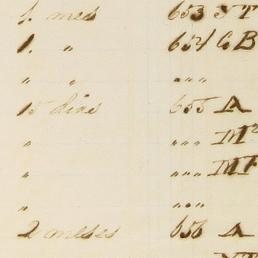 1. mes 653 J T
1. " 654 C B
" " """
15 dias 655 A
" """ M
" """ M
" """
2 meses 656 A